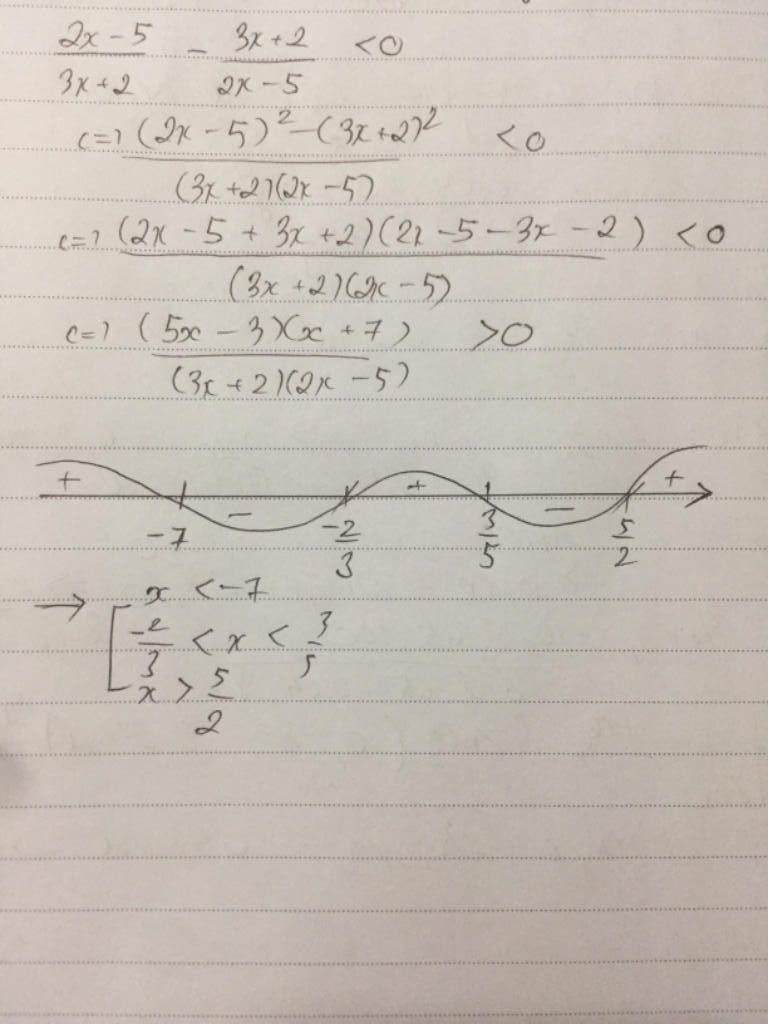 2x - 5 / 3x + 2 - 3x + 2 / 2x - 5 < 0
<=> (2x - 5)² - (3x + 2)² / (3x + 2)(2x - 5) < 0
<=> (2x - 5 + 3x + 2)(2x - 5 - 3x - 2) / (3x + 2)(2x - 5) < 0
<=> (5x - 3)(x + 7) / (3x + 2)(2x - 5) > 0
+ - + - +
-7 -2/3 3/5 5/2
→ [ x < -7
-2/3 < x < 3/5
x > 5/2